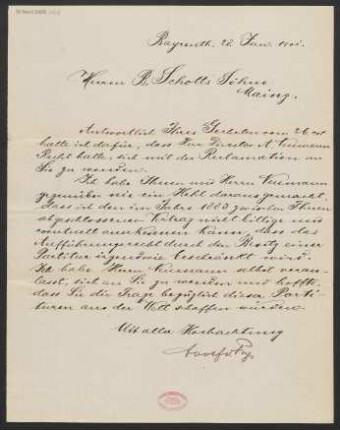 Bayreuth, 28. Jan. 1901.
Herrn B. Schotts Söhne
Mainz.
Antwortlich Ihres Geehrten vom 26. ct
halte ich dafür, dass Herr Director A. Neumann
Recht hatte, sich mit der Reclamation an
Sie zu wenden.
Ich habe Ihnen und Herrn Neumann
gegenüber nie ein Hehl daraus gemacht,
dass ich den im Jahre 1883 zwischen Ihnen
abgeschlossenen Vertrag nicht billige und
eventuell anerkennen kann, dass das
Aufführungsrecht durch den Besitz einer
Partitur irgendwie beschränkt wird.
Ich habe Herrn Neumann selbst veran-
lasst, sich an Sie zu wenden und hoffte
dass Sie die Frage bezüglich dieser Parti-
turen aus der Welt schaffen würden.
Mit aller Hochachtung